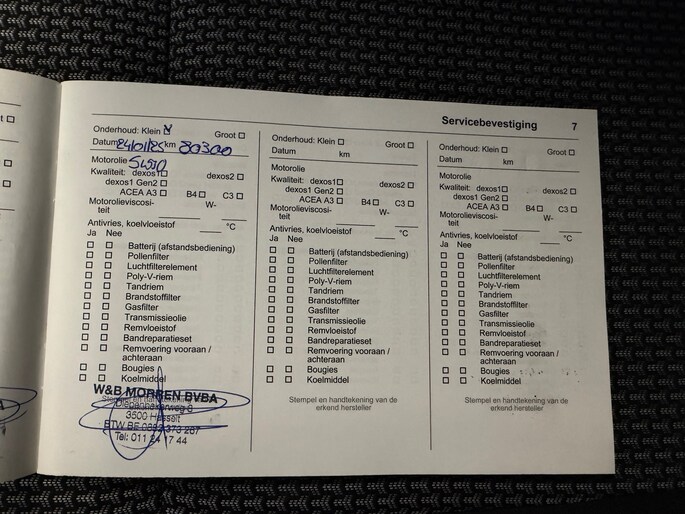 t
Servicebevestiging 7
Onderhoud: Klein Groot
Datum 24/01/25 km 80300
Motorolie 5W30
Kwaliteit: dexos1 dexos2
dexos1 Gen2
ACEA A3 B4 C3
Motorolieviscosi- W-
teit
Antivries, koelvloeistof °C
Ja Nee
Batterij (afstandsbediening)
Pollenfilter
Luchtfilterelement
Poly-V-riem
Tandriem
Brandstoffilter
Gasfilter
Transmissieolie
Remvloeistof
Bandreparatieset
Remvoering vooraan /
achteraan
Bougies
Koelmiddel
W&B MORREN BVBA
3500 Hasselt
Tel: 011 24 17 44
Onderhoud: Klein Groot
Datum km
Motorolie
Kwaliteit: dexos1 dexos2
dexos1 Gen2
ACEA A3 B4 C3
Motorolieviscosi- W-
teit
Antivries, koelvloeistof °C
Ja Nee
Batterij (afstandsbediening)
Pollenfilter
Luchtfilterelement
Poly-V-riem
Tandriem
Brandstoffilter
Gasfilter
Transmissieolie
Remvloeistof
Bandreparatieset
Remvoering vooraan /
achteraan
Bougies
Koelmiddel
Stempel en handtekening van de
erkend hersteller
Onderhoud: Klein Groot
Datum km
Motorolie
Kwaliteit: dexos1 dexos2
dexos1 Gen2
ACEA A3 B4 C3
Motorolieviscosi- W-
teit
Antivries, koelvloeistof °C
Ja Nee
Batterij (afstandsbediening)
Pollenfilter
Luchtfilterelement
Poly-V-riem
Tandriem
Brandstoffilter
Gasfilter
Transmissieolie
Remvloeistof
Bandreparatieset
Remvoering vooraan /
achteraan
Bougies
Koelmiddel
Stempel en handtekening van de
erkend hersteller